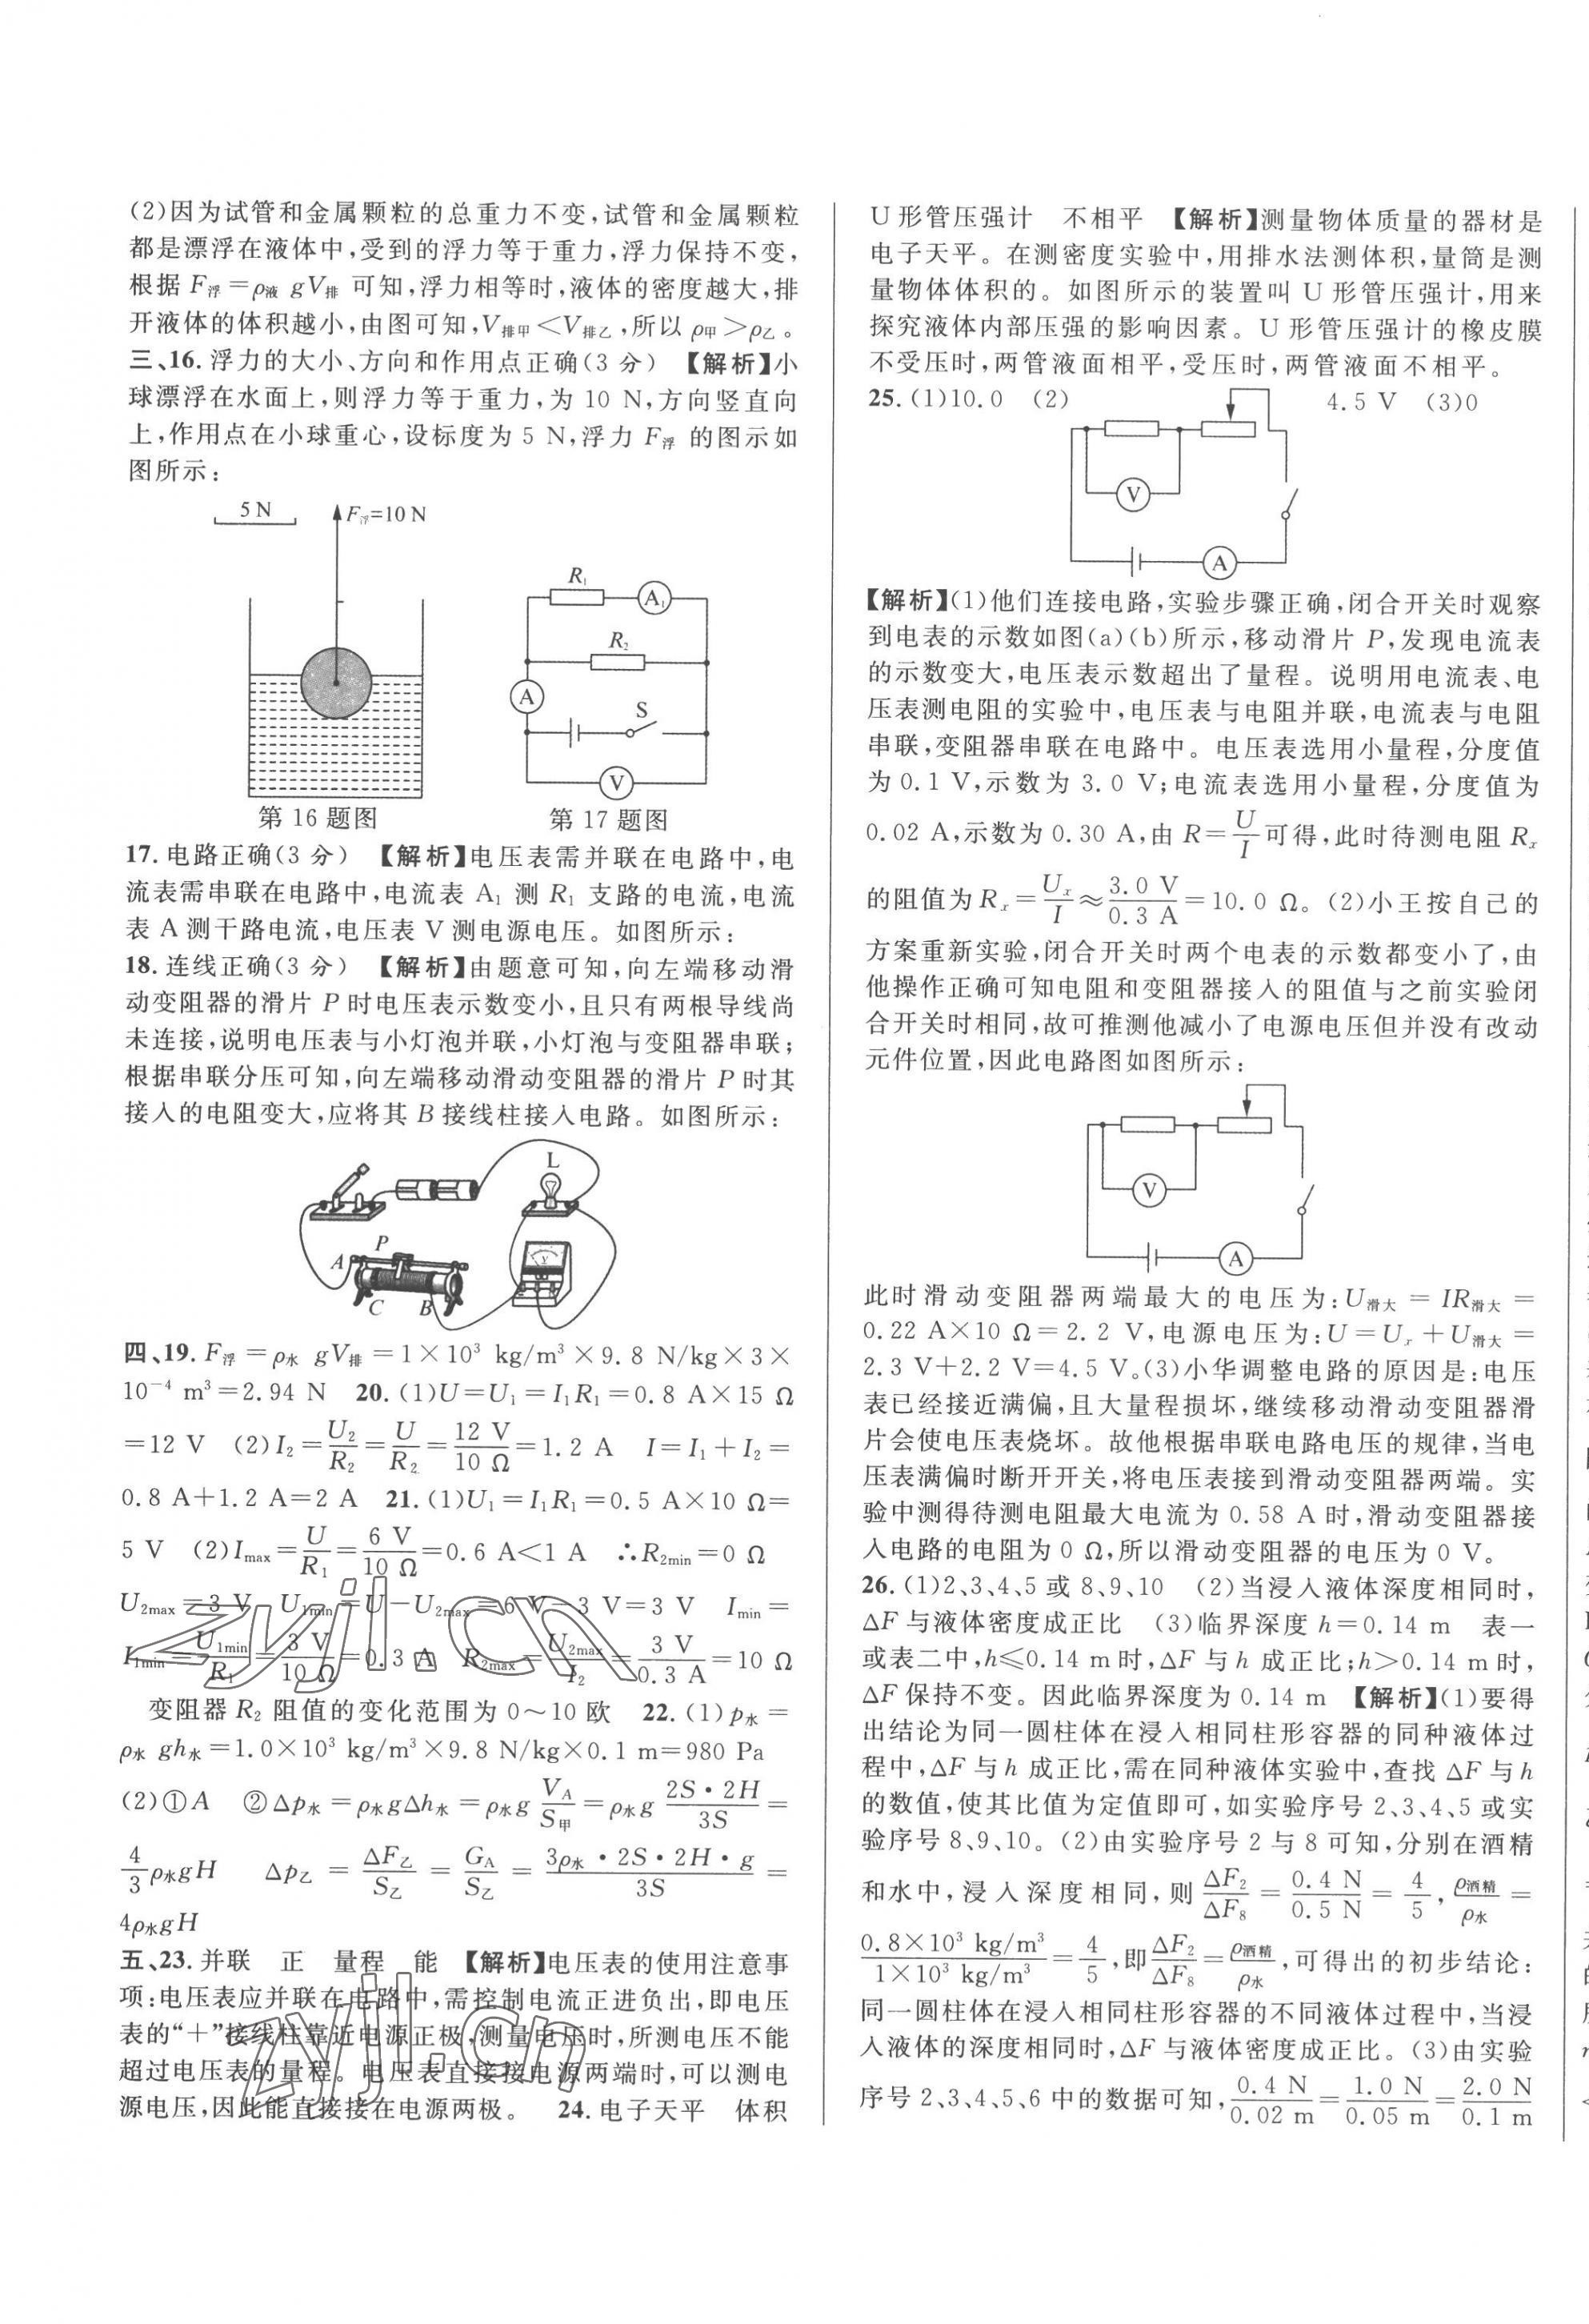 (2)因为试管和金属颗粒的总重力不变,试管和金属颗粒
都是漂浮在液体中,受到的浮力等于重力,浮力保持不变,
根据 F浮=ρ液 gV排 可知,浮力相等时,液体的密度越大,排
开液体的体积越小,由图可知,V排甲<V排乙,所以 ρ甲>ρ乙。
三、16. 浮力的大小、方向和作用点正确(3 分) 【解析】小
球漂浮在水面上,则浮力等于重力,为 10 N,方向竖直向
上,作用点在小球重心,设标度为 5 N,浮力 F浮 的图示如
图所示:
5 N
F浮=10 N
R₁
A₁
R₂
A
S
V
第 16 题图
第 17 题图
17. 电路正确(3 分) 【解析】电压表需并联在电路中,电
流表需串联在电路中,电流表 A₁ 测 R₁ 支路的电流,电流
表 A 测干路电流,电压表 V 测电源电压。如图所示:
18. 连线正确(3 分) 【解析】由题意可知,向左端移动滑
动变阻器的滑片 P 时电压表示数变小,且只有两根导线尚
未连接,说明电压表与小灯泡并联,小灯泡与变阻器串联;
根据串联分压可知,向左端移动滑动变阻器的滑片 P 时其
接入的电阻变大,应将其 B 接线柱接入电路。如图所示:
L
P
A
C
B
V
四、19. F浮=ρ水 gV排=1×10³ kg/m³×9.8 N/kg×3×
10⁻⁴ m³=2.94 N 20. (1)U=U₁=I₁R₁=0.8 A×15 Ω
=12 V (2)I₂=U₂/R₂=U/R₂=12 V/10 Ω=1.2 A I=I₁+I₂=
0.8 A+1.2 A=2 A 21. (1)U₁=I₁R₁=0.5 A×10 Ω=
5 V (2)Imax=U/R₁=6 V/10 Ω=0.6 A<1 A ∴R2min=0 Ω
U2max=3 V U1min=U-U2max=6 V-3 V=3 V Imin=
I1min=U1min/R₁=3 V/10 Ω=0.3 A R2max=U2max/I₂=3 V/0.3 A=10 Ω
变阻器 R₂ 阻值的变化范围为 0~10 欧 22. (1)p水=
ρ水 gh水=1.0×10³ kg/m³×9.8 N/kg×0.1 m=980 Pa
(2)①A ②Δp水=ρ水gΔh水=ρ水g V_A/S甲=ρ水g 2S·2H/3S=
4/3ρ水gH Δp乙=ΔF乙/S乙=G_A/S乙=3ρ水·2S·2H·g/3S=
4ρ水gH
五、23. 并联 正 量程 能 【解析】电压表的使用注意事
项:电压表应并联在电路中,需控制电流正进负出,即电压
表的“+”接线柱靠近电源正极,测量电压时,所测电压不能
超过电压表的量程。电压表直接接电源两端时,可以测电
源电压,因此能直接接在电源两极。 24. 电子天平 体积
U 形管压强计 不相平 【解析】测量物体质量的器材是
电子天平。在测密度实验中,用排水法测体积,量筒是测
量物体体积的。如图所示的装置叫 U 形管压强计,用来
探究液体内部压强的影响因素。U 形管压强计的橡皮膜
不受压时,两管液面相平,受压时,两管液面不相平。
25. (1)10.0 (2) 4.5 V (3)0
V
A
【解析】(1)他们连接电路,实验步骤正确,闭合开关时观察
到电表的示数如图(a)(b)所示,移动滑片 P,发现电流表
的示数变大,电压表示数超出了量程。说明用电流表、电
压表测电阻的实验中,电压表与电阻并联,电流表与电阻
串联,变阻器串联在电路中。电压表选用小量程,分度值
为 0.1 V,示数为 3.0 V;电流表选用小量程,分度值为
0.02 A,示数为 0.30 A,由 R=U/I可得,此时待测电阻 Rx
的阻值为 Rx=Ux/I≈3.0 V/0.3 A=10.0 Ω。(2)小王按自己的
方案重新实验,闭合开关时两个电表的示数都变小了,由
他操作正确可知电阻和变阻器接入的阻值与之前实验闭
合开关时相同,故可推测他减小了电源电压但并没有改动
元件位置,因此电路图如图所示:
V
A
此时滑动变阻器两端最大的电压为:U滑大=IR滑大=
0.22 A×10 Ω=2.2 V,电源电压为:U=Ux+U滑大=
2.3 V+2.2 V=4.5 V。(3)小华调整电路的原因是:电压
表已经接近满偏,且大量程损坏,继续移动滑动变阻器滑
片会使电压表烧坏。故他根据串联电路电压的规律,当电
压表满偏时断开开关,将电压表接到滑动变阻器两端。实
验中测得待测电阻最大电流为 0.58 A 时,滑动变阻器接
入电路的电阻为 0 Ω,所以滑动变阻器的电压为 0 V。
26. (1)2、3、4、5 或 8、9、10 (2)当浸入液体深度相同时,
ΔF 与液体密度成正比 (3)临界深度 h=0.14 m 表一
或表二中,h≤0.14 m时,ΔF 与 h 成正比;h>0.14 m时,
ΔF 保持不变。因此临界深度为 0.14 m 【解析】(1)要得
出结论为同一圆柱体在浸入相同柱形容器的同种液体过
程中,ΔF 与 h 成正比,需在同种液体实验中,查找 ΔF 与 h
的数值,使其比值为定值即可,如实验序号 2、3、4、5 或实
验序号 8、9、10。(2)由实验序号 2 与 8 可知,分别在酒精
和水中,浸入深度相同,则 ΔF₂/ΔF₈=0.4 N/0.5 N=4/5,ρ酒精/ρ水=
0.8×10³ kg/m³/1×10³ kg/m³=4/5,即ΔF₂/ΔF₈=ρ酒精/ρ水,可得出的初步结论:
同一圆柱体在浸入相同柱形容器的不同液体过程中,当浸
入液体的深度相同时,ΔF 与液体密度成正比。(3)由实验
序号 2、3、4、5、6 中的数据可知,0.4 N/0.02 m=1.0 N/0.05 m=2.0 N/0.1 m
zyjl.cn
zyjl.cn